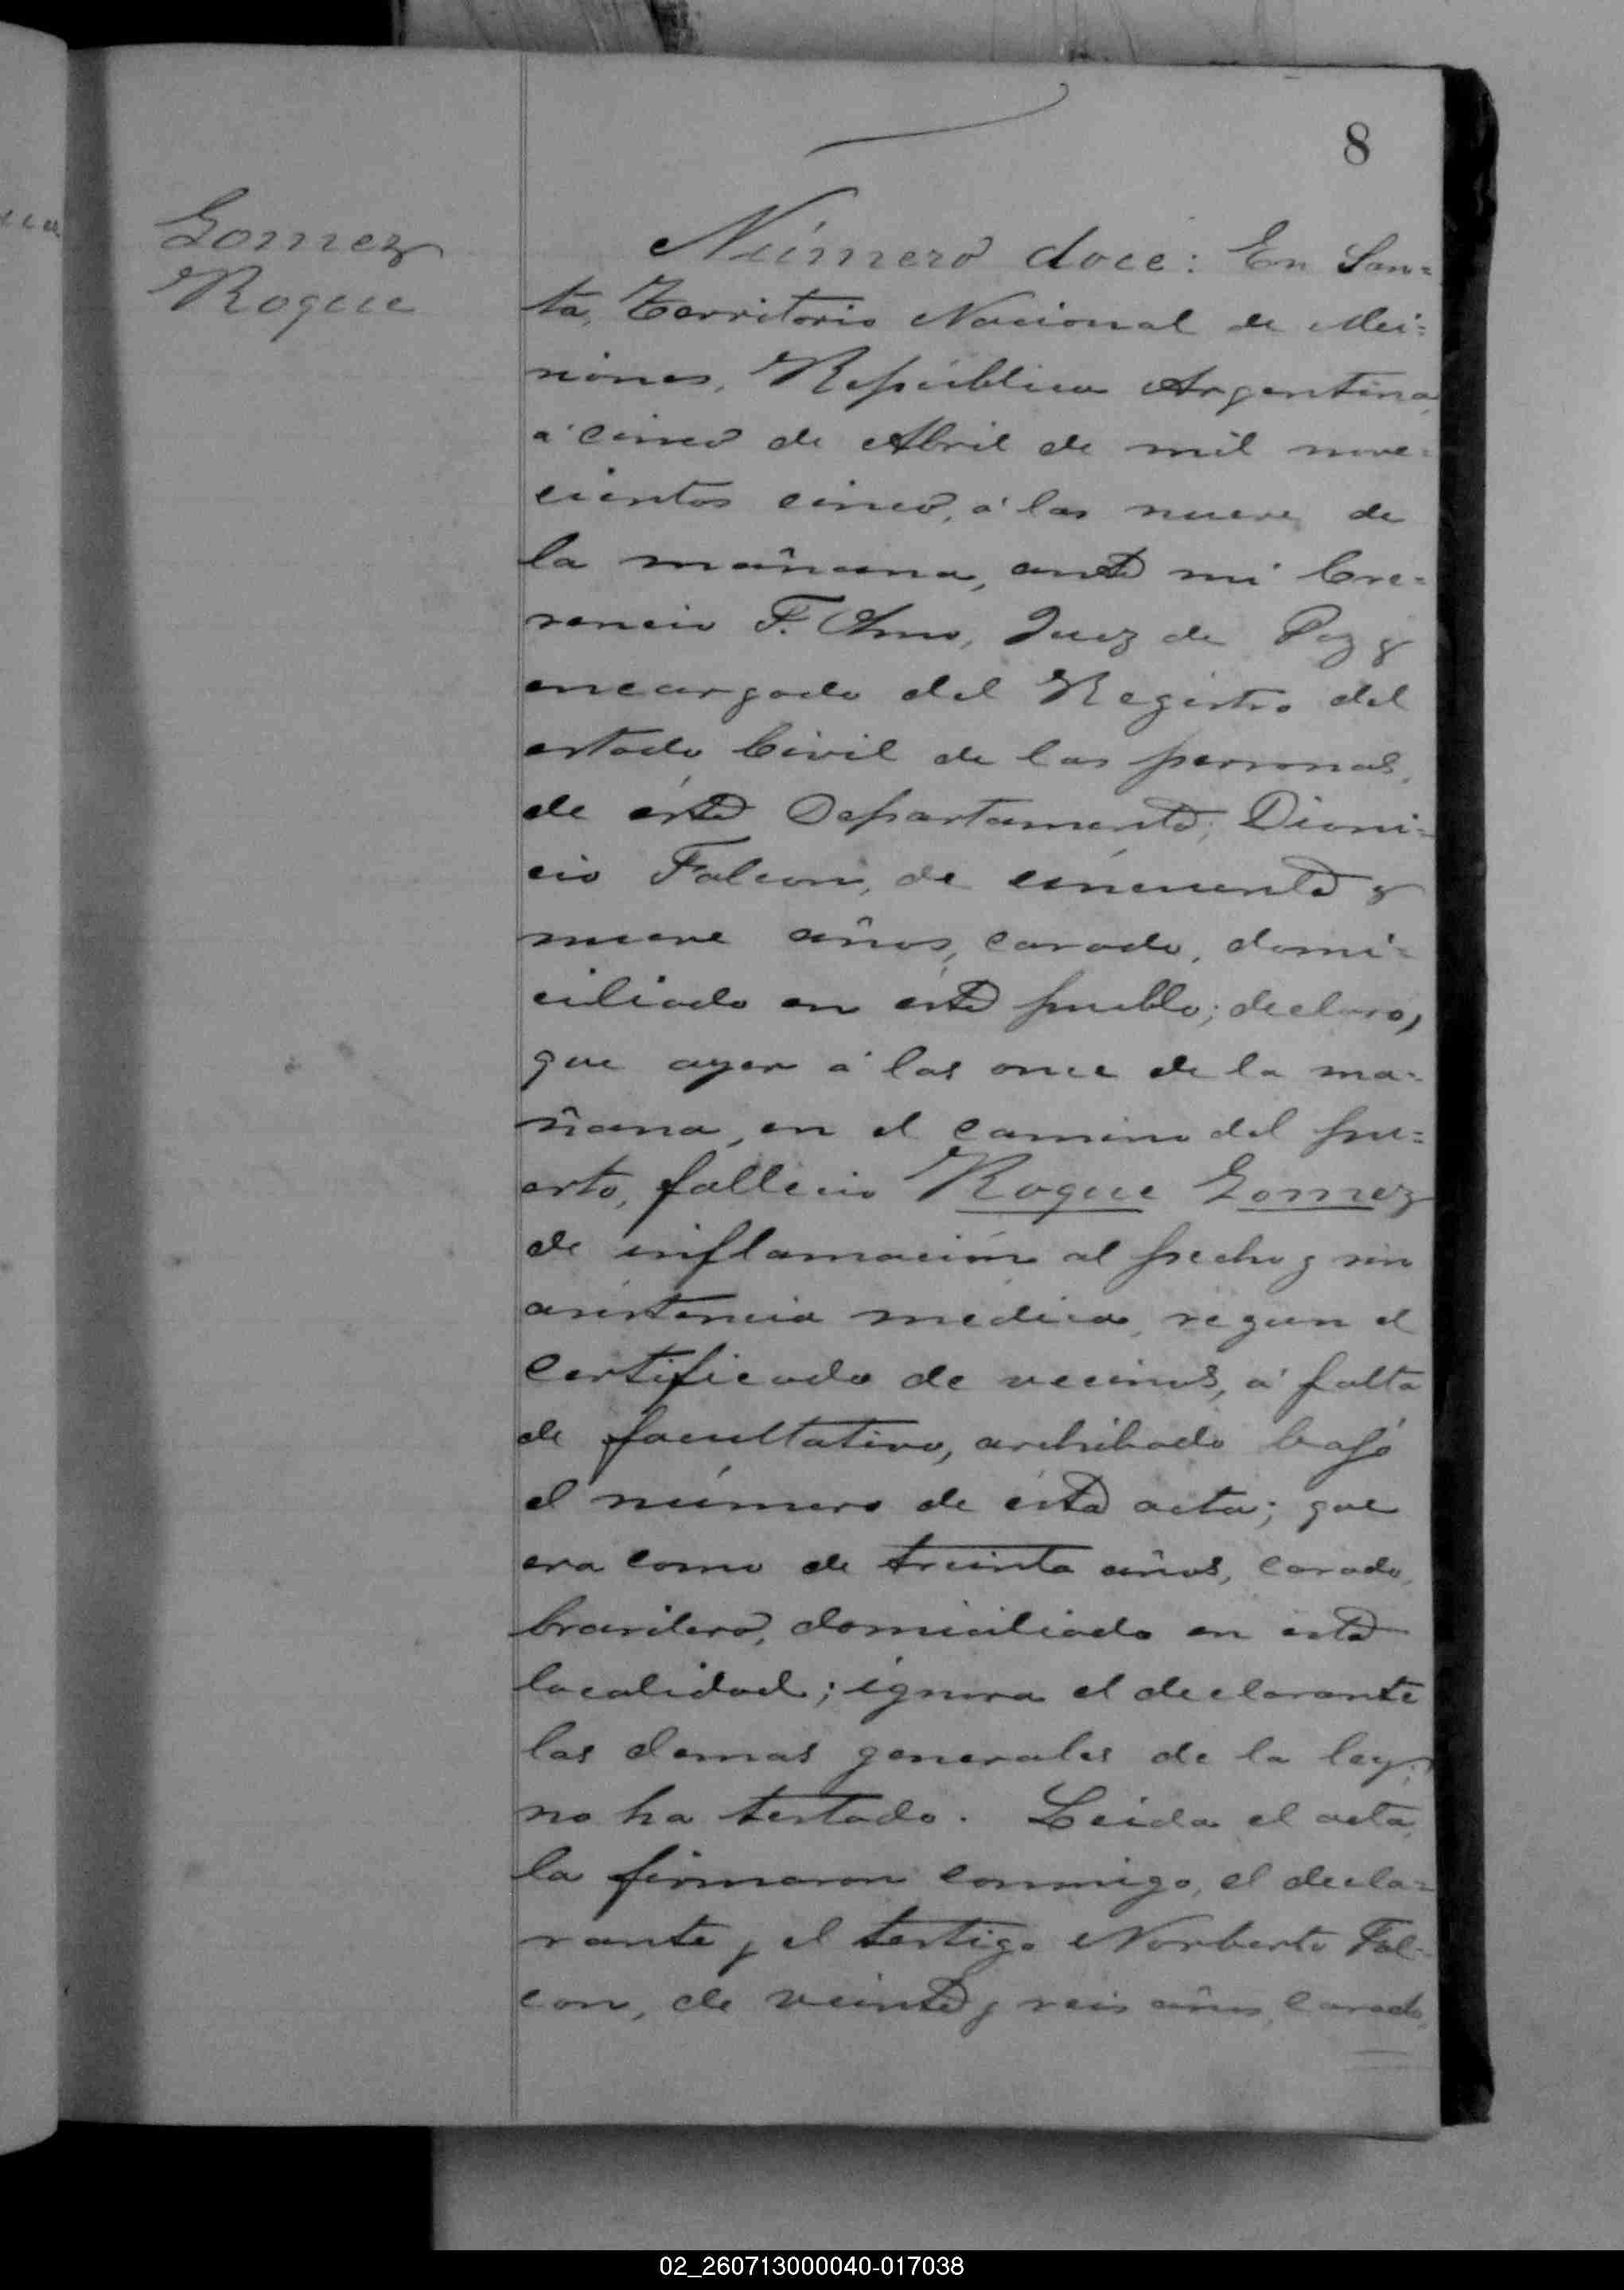 8
Gomez
Roque
Número doce: En San=
ta, Territorio Nacional de Mi=
siones, República Argentina,
á cinco de Abril de mil nove=
cientos cinco, á las nueve de
la mañana, ante mi
F. Juez de Paz y
encargado del Registro del
estado Civil de las personas,
de éste Departamento; Dioni=
cio Falcon, de cincuenta y
nueve años, casado, domi=
ciliado en éste pueblo; declaro,
que ayer á las once de la ma=
ñana, en el camino del pu=
erto, fallecio Roque Gomez
de inflamación al pecho y sin
asistencia médica, segun el
certificado de vecinos, á falta
de facultativo, archibado bajó
el número de ésta acta; que
era como de treinta años, casado,
brasilero, domiciliado en esta
localidad; ignora el declarante
las demas generales de la ley;
no ha testado. Leida el acta,
la firmaron conmigo, el decla=
rante y el testigo Norberto Fal=
con, de veinte y seis años, casado,
02_260713000040-017038